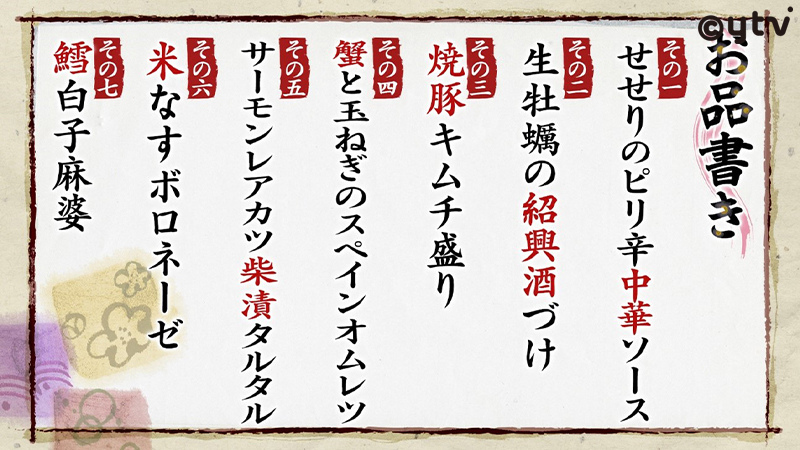 ©ytv
お品書き
その一
せせりのピリ辛中華ソース
その二
生牡蠣の紹興酒づけ
その三
焼豚キムチ盛り
その四
蟹と玉ねぎのスペインオムレツ
その五
サーモンレアカツ柴漬タルタル
その六
米なすボロネーゼ
その七
鱈白子麻婆